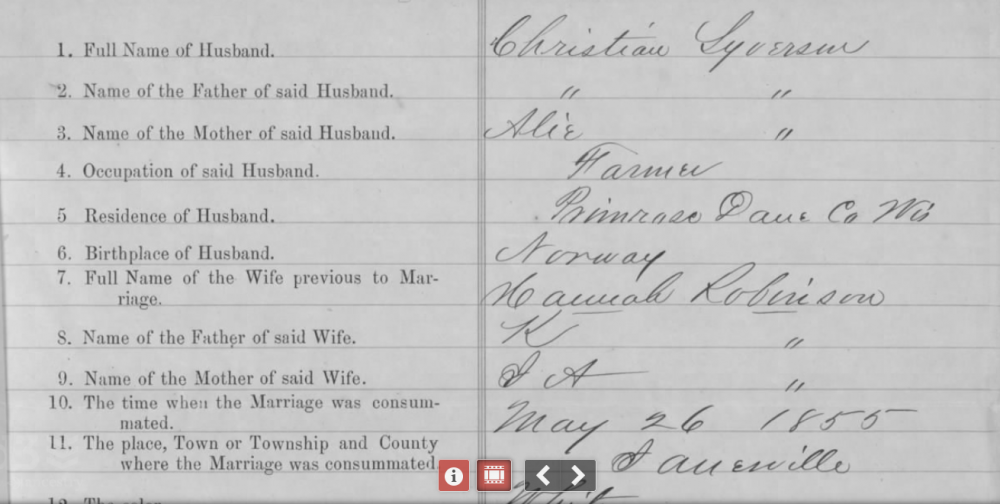 1. Full Name of Husband. Christian Syverson
2. Name of the Father of said Husband. " "
3. Name of the Mother of said Husband. Alie "
4. Occupation of said Husband. Farmer
5 Residence of Husband. Primrose Dane Co Wis
6. Birthplace of Husband. Norway
7. Full Name of the Wife previous to Mar-
riage. Hannah Robinson
8. Name of the Father of said Wife. K "
9. Name of the Mother of said Wife. I A "
10. The time when the Marriage was consum-
mated. May 26 1855
11. The place, Town or Township and County
where the Marriage was consummated. Janesville